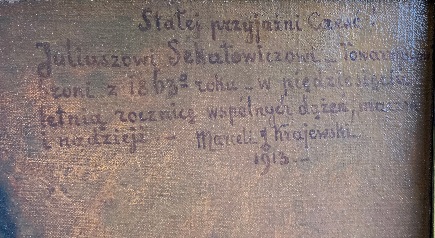 Stałej przyjaźni Cześć!
Juliuszowi Sekułowiczowi – Towarzyszowi
broni z 1863º roku – w pięćdziesięcio
letnią rocznicę wspólnych dążeń, marzeń
i nadzieji –
1913.–